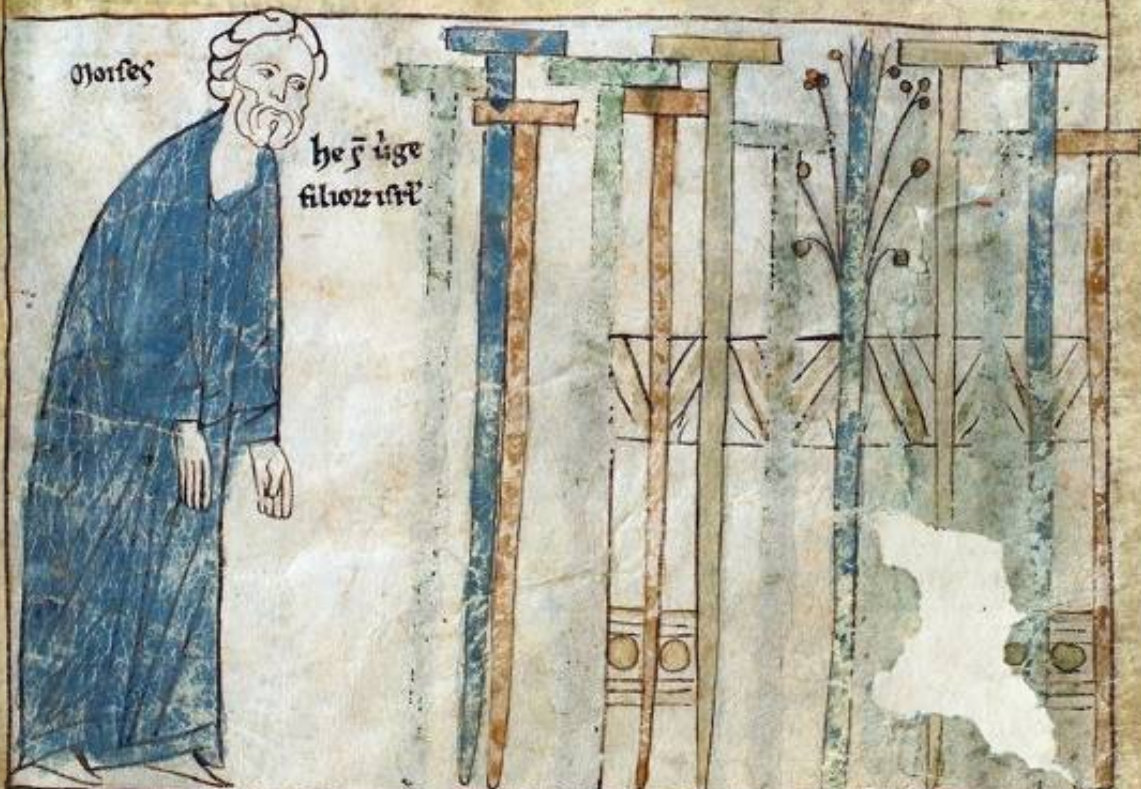 Moises
he s̄ uͥge
filioꝝ isrl̄